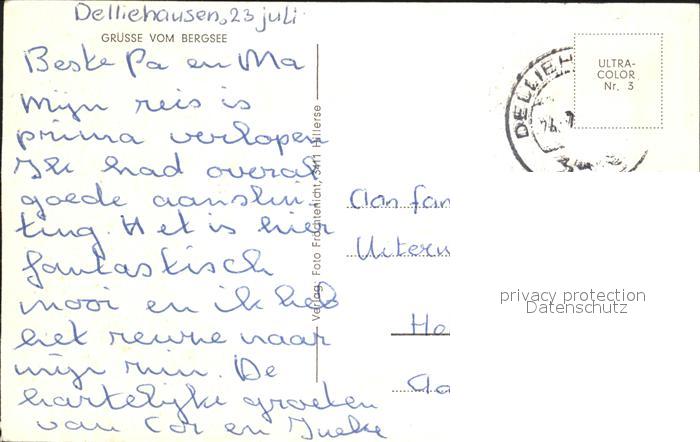 Delliehausen, 23 juli
GRÜSSE VOM BERGSEE
Beste Pa en Ma
Mijn reis is
prima verlopen
Ik had overal
goede aanslui-
ting. Het is hier
fantastisch
mooi en ik heb
het reuze naar
mijn zin. De
hartelijke groeten
van Cor en Ineke
Verlag: Foto Früchtenicht, 3411 Hillerse
ULTRA-
COLOR
Nr. 3
DELLIEH
Aan fam
Uiterw
Ho
privacy protection
Datenschutz